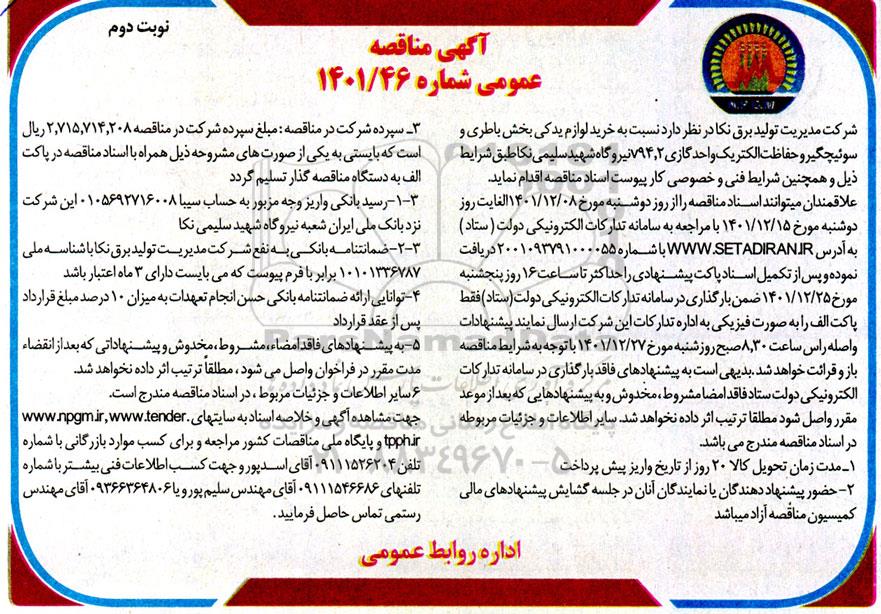 نوبت دوم
آگهی مناقصه
عمومی شماره ۱۴۰۱/۴۶
شرکت مدیریت تولید برق نکا در نظر دارد نسبت به خرید لوازم یدکی بخش باطری و
سوئیچگیر و حفاظت الکتریک واحد گازی ۷۹۴,۲ نیروگاه شهید سلیمی نکا طبق شرایط
ذیل و همچنین شرایط فنی و خصوصی کار پیوست اسناد مناقصه اقدام نماید.
علاقمندان میتوانند اسناد مناقصه را از روز دوشنبه مورخ ۱۴۰۱/۱۲/۰۸ الغایت روز
دوشنبه مورخ ۱۴۰۱/۱۲/۱۵ با مراجعه به سامانه تدارکات الکترونیکی دولت ( ستاد )
به آدرس WWW.SETADIRAN.IR با شماره ۲۰۰۱۰۹۳۷۹۱۰۰۰۰۵۵ دریافت
نموده و پس از تکمیل اسناد پاکت پیشنهادی را حداکثر تا ساعت ۱۶ روز پنجشنبه
مورخ ۱۴۰۱/۱۲/۲۵ ضمن بارگذاری در سامانه تدارکات الکترونیکی دولت (ستاد) فقط
پاکت الف را به صورت فیزیکی به اداره تدارکات این شرکت ارسال نمایند پیشنهادات
واصله راس ساعت ۸,۳۰ صبح روز شنبه مورخ ۱۴۰۱/۱۲/۲۷ با توجه به شرایط مناقصه
باز و قرائت خواهد شد.بدیهی است به پیشنهادهای فاقد بارگذاری در سامانه تدارکات
الکترونیکی دولت ستاد فاقد امضا مشروط، مخدوش و به پیشنهادهایی که بعد از موعد
مقرر واصل شود مطلقا ترتیب اثر داده نخواهد شد. سایر اطلاعات و جزئیات مربوطه
در اسناد مناقصه مندرج می باشد.
۱ـ مدت زمان تحویل کالا ۲۰ روز از تاریخ واریز پیش پرداخت
۲- حضور پیشنهاد دهندگان یا نمایندگان آنان در جلسه گشایش پیشنهادهای مالی
کمیسیون مناقصه آزاد میباشد
۳ـ سپرده شرکت در مناقصه : مبلغ سپرده شرکت در مناقصه ۲,۷۱۵,۷۱۴,۲۰۸ ریال
است که بایستی به یکی از صورت های مشروحه ذیل همراه با اسناد مناقصه در پاکت
الف به دستگاه مناقصه گذار تسلیم گردد
۱-۳-رسید بانکی واریز وجه مزبور به حساب سیبا ۰۱۰۵۶۹۲۷۱۶۰۰۸ این شرکت
نزد بانک ملی ایران شعبه نیروگاه شهید سلیمی نکا
۲-۳- ضمانتنامه بانکی به نفع شرکت مدیریت تولید برق نکا با شناسه ملی
۱۰۱۰۱۳۳۶۷۸۷ برابر با فرم پیوست که می بایست دارای ۳ ماه اعتبار باشد
۴-توانایی ارائه ضمانتنامه بانکی حسن انجام تعهدات به میزان ۱۰ درصد مبلغ قرارداد
پس از عقد قرارداد
۵-به پیشنهادهای فاقد امضاء، مشروط، مخدوش و پیشنهاداتی که بعد از انقضاء
مدت مقرر در فراخوان واصل می شود ، مطلقاً ترتیب اثر داده نخواهد شد.
۶ سایر اطلاعات و جزئیات مربوط ، در اسناد مناقصه مندرج است.
جهت مشاهده آگهی و خلاصه اسناد به سایتهای www.npgm.ir, www.tender.
tpph.ir و پایگاه ملی مناقصات کشور مراجعه و برای کسب موارد بازرگانی با شماره
تلفن ۰۹۱۱۱۵۲۶۲۰۴ آقای اسدپور و جهت کسب اطلاعات فنی بیشتر با شماره
تلفنهای ۰۹۱۱۱۵۴۶۶۸۶ آقای مهندس سلیم پور و یا ۰۹۳۶۶۳۶۴۸۰۶ آقای مهندس
رستمی تماس حاصل فرمایید .
اداره روابط عمومی